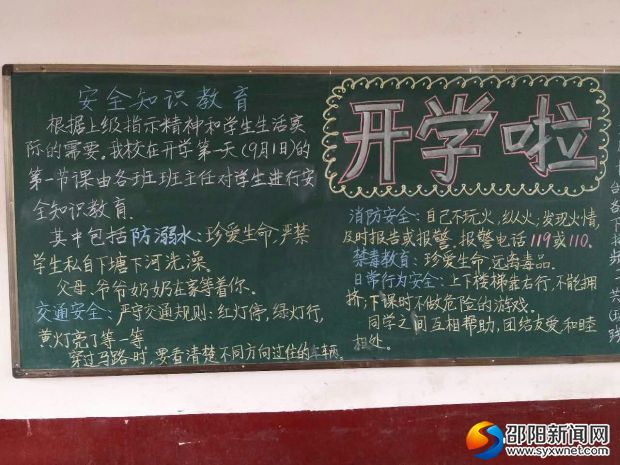 安全知识教育
根据上级指示精神和学生生活实
际的需要。我校在开学第一天(9月1日)的
第一节课由各班班主任对学生进行安
全知识教育.
其中包括防溺水:珍爱生命,严禁
学生私自下塘下河洗澡。
父母、爷爷奶奶在家等着你。
交通安全:严守交通规则:红灯停,绿灯行,
黄灯亮了等一等.
穿过马路时,要看清楚不同方向过往的车辆。
开学啦
消防安全:自己不玩火,纵火;发现火情,
及时报告或报警,报警电话119或110.
禁毒教育:珍爱生命,远离毒品.
日常行为安全:上下楼梯靠右行,不能拥
挤;下课时不做危险的游戏.
同学之间互相帮助,团结友爱,和睦
相处。
邵阳新闻网
www.syxwnet.com